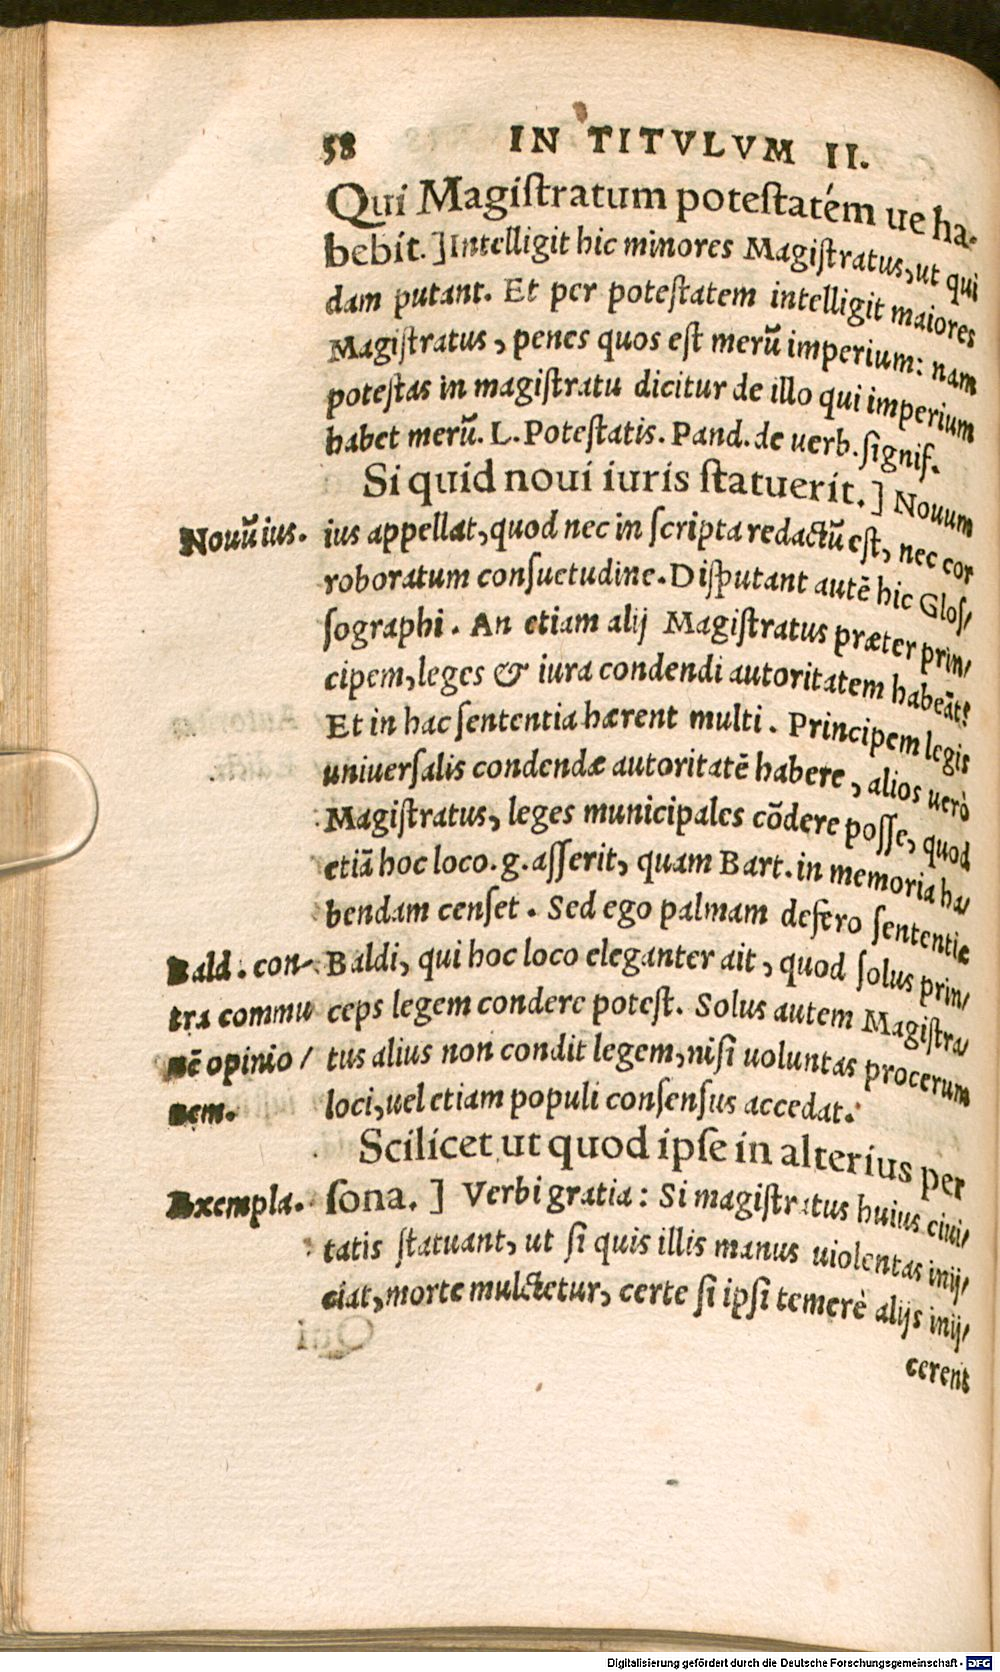 58 IN TITVLVM II.
Qui Magiſtratum poteſtatém ue ha-
bebit.] Intelligit hic minores Magiſtratus, ut qui
dam putant. Et per poteſtatem intelligit maiores
Magiſtratus, penes quos eſt merũ imperium: nam
poteſtas in magiſtratu dicitur de illo qui imperium
habet merũ. L. Poteſtatis. Pand. de uerb. ſignif.
Si quid noui iuris ſtatuerit.] Nouum
Nouũ ius.
ius appellat, quod nec in ſcripta redactũ eſt, nec cor
roboratum conſuetudine. Diſputant autẽ hic Gloſ/
ſographi. An etiam alij Magiſtratus præter prin/
cipem, leges & iura condendi autoritatem habeãt?
Et in hac ſententia hærent multi. Principem legis
uniuerſalis condendæ autoritatẽ habere, alios uerò
Magiſtratus, leges municipales cõdere poſſe, quod
etiã hoc loco. g. aſſerit, quam Bart. in memoria ha/
bendam cenſet. Sed ego palmam defero ſententiæ
Bald. con-
tra commu
nẽ opinio/
nem.
Baldi, qui hoc loco eleganter ait, quod ſolus prin/
ceps legem condere poteſt. Solus autem Magiſtra/
tus alius non condit legem, niſi uoluntas procerum
loci, uel etiam populi conſenſus accedat.
Scilicet ut quod ipſe in alterius per
Exempla.
ſona.] Verbi gratia: Si magiſtratus huius ciui/
tatis ſtatuant, ut ſi quis illis manus uiolentas inij/
ciat, morte mulctetur, certe ſi ipſi temerè alijs inij/
cerent
Digitalisierung gefördert durch die Deutsche Forschungsgemeinschaft - DFG